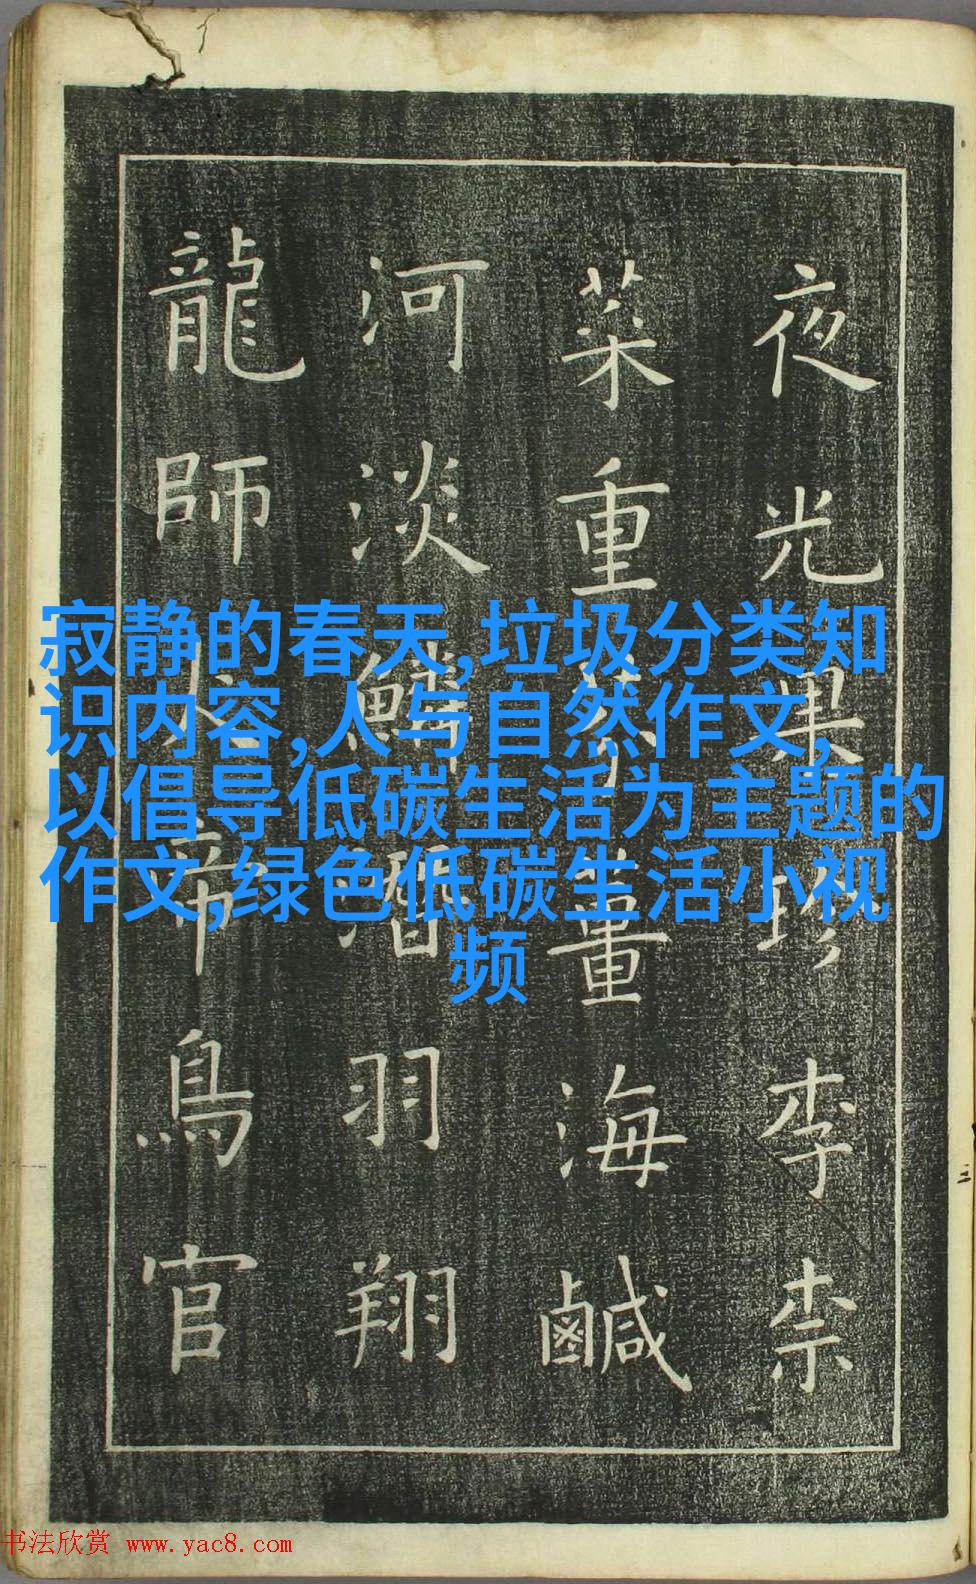 夜光果珍李柰
菜重薑海鹹
河淡鱗潛羽翔
龍師帝鳥官
寂静的春天,垃圾分类知
识内容,人与自然作文,
以倡导低碳生活为主题的
作文,绿色低碳生活小视
频
书法欣赏 www.yac8.com